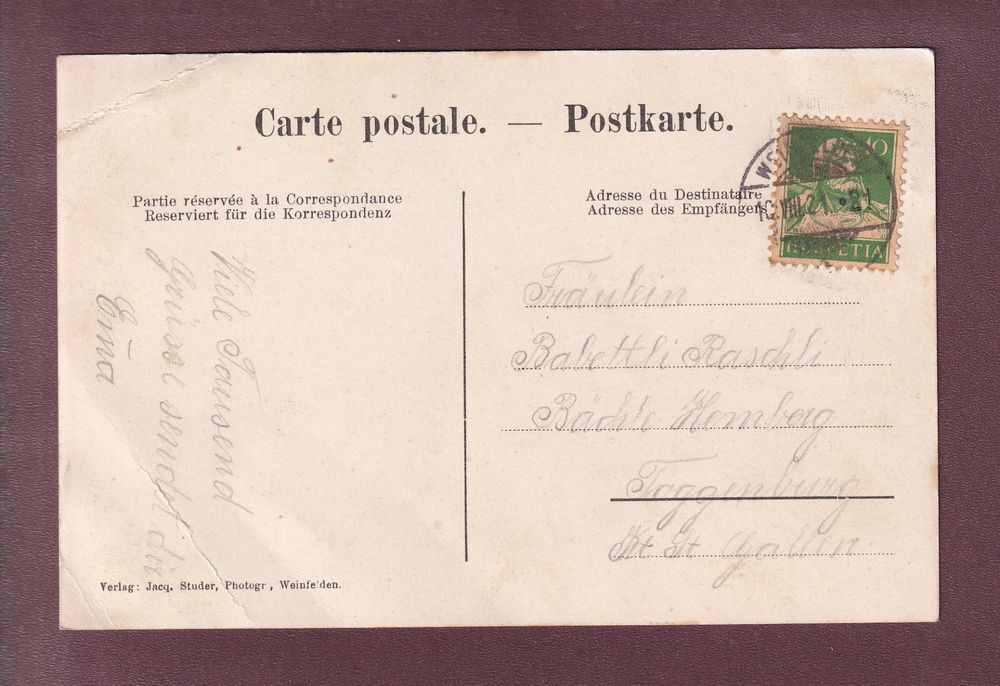 Carte postale. — Postkarte.
Partie réservée à la Correspondance
Reserviert für die Korrespondenz
Viele Tausend
Grüsse sendet dir
Erna
Verlag: Jacq. Studer, Photogr, Weinfelden.
Adresse du Destinataire
Adresse des Empfängers
10
HELVETIA
Fräulein
Babettli Raschli
Bächle Hemberg
Toggenburg
Kt St Gallen